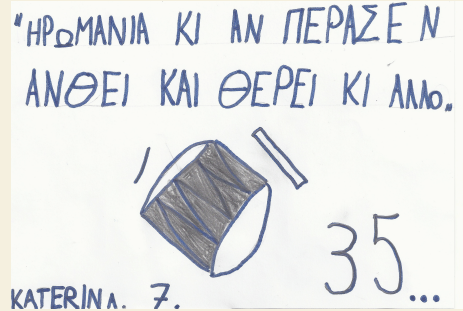 "ΗΡΩΜΑΝΙΑ ΚΙ ΑΝ ΠΕΡΑΣΕΝ
ΑΝΘΕΙ ΚΑΙ ΘΕΡΕΙ ΚΙ ΑΛΛΟ„
35...
KATERINA. 7.